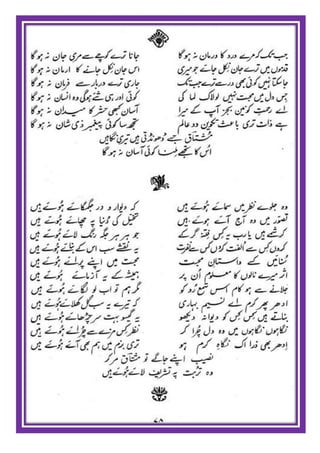 جب تک کہ مرے درد کا درماں نہ ہو گا جانا ترے کوچے سے مری جان نہ ہو گا
قدموں میں ترے جان نکل جائے جو میری اس جان نکل جانے کا ارماں نہ ہو گا
جا سکتا نہیں کوئی بھی در سے ترے جب تک جاری ترے دربار سے فرماں نہ ہو گا
جس دل میں محبت نہیں لولاک لما کی کوئی اور ہی شے ہو گی وہ انساں نہ ہو گا
اے رحمت کونین بجز آپ کے میرا آساں کبھی حشر کا میداں نہ ہو گا
ہے ذات تری باعث تکوین دو عالم تجھ سا کوئی پیغمبر ذی شاں نہ ہو گا
مشتاق جسے ڈھونڈتی ہیں تیری نگاہیں
اس کا تجھے ملنا کوئی آساں نہ ہو گا
وہ جلوے نظر میں سمائے ہوئے ہیں کہ دیوار و در جگمگائے ہوئے ہیں
تصور میں وہ آج آئے ہوئے ہیں تخیل کی دنیا پہ چھائے ہوئے ہیں
کرشمے ہیں یارب یہ کس فتنہ گر کے جو ہر ہر جگہ رنگ لائے ہوئے ہیں
کروں کس سے الفت کروں کس سے نفرت یہ نقشے سب اس کے بنائے ہوئے ہیں
سنائیں گے داستان محبت محبت میں اپنے پرائے ہوئے ہیں
اثر میرے نالوں کا معلوم ان پر ہمیشہ کے یہ آزمائے ہوئے ہیں
جلانے سے ہو کام بس شمع رو کو مگر ہم تو اب لو لگائے ہوئے ہیں
ادھر پھر کرم اے نسیم بہاری کہ تیرے یہ سب گل کھلائے ہوئے ہیں
بناتے ہیں کس کس کو دیوانہ دیکھو یہ گیسو بہت سر چڑھائے ہوئے ہیں
نگاہوں نگاہوں میں وہ دل چرا کر نظر کس مزے سے چرائے ہوئے ہیں
ادھر بھی فدا اک نگاہ کرم ہو تری بزم میں ہم بھی آئے ہوئے ہیں
نصیب اپنے جاگے تو مشتاق مر کر
وہ تربت پہ تشریف لائے ہوئے ہیں